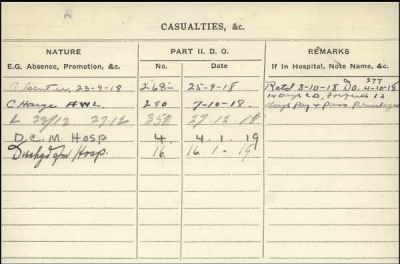 CASUALTIES, &c.
NATURE
E.G. Absence, Promotion, &c.
PART II. D. O.
No.
Date
REMARKS
If in Hospital, Note Name, &c.
Absentee, 23-9-18 268 25-9-18 Retd 3-10-18 Do. 277 4-10-18
Charge AWL 280 7-10-18. 14 days CB, Forfeits 12
days Pay & Pass
L 358 27-12-18
D.C.M Hosp 4. 4.1.19
Hosp. 16. 16-1-19